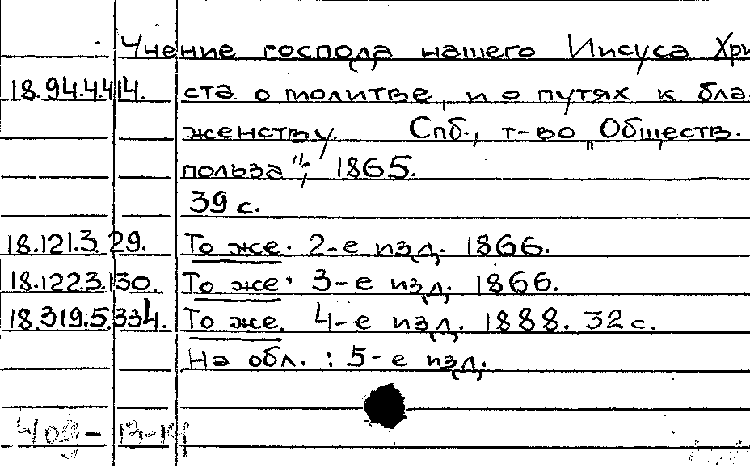 Учение господа нашего Иисуса Хри
18.94.4.414. ста о молитве, и о путях к бла-
женству. Спб., т-во „Обществ.
польза", 1865.
39 с.
18.121.3.29. То же. 2-е изд. 1866.
18.122.3.130. То же. 3-е изд. 1866.
18.319.5.334. То же. 4-е изд. 1888. 32 с.
На обл.: 5-е изд.